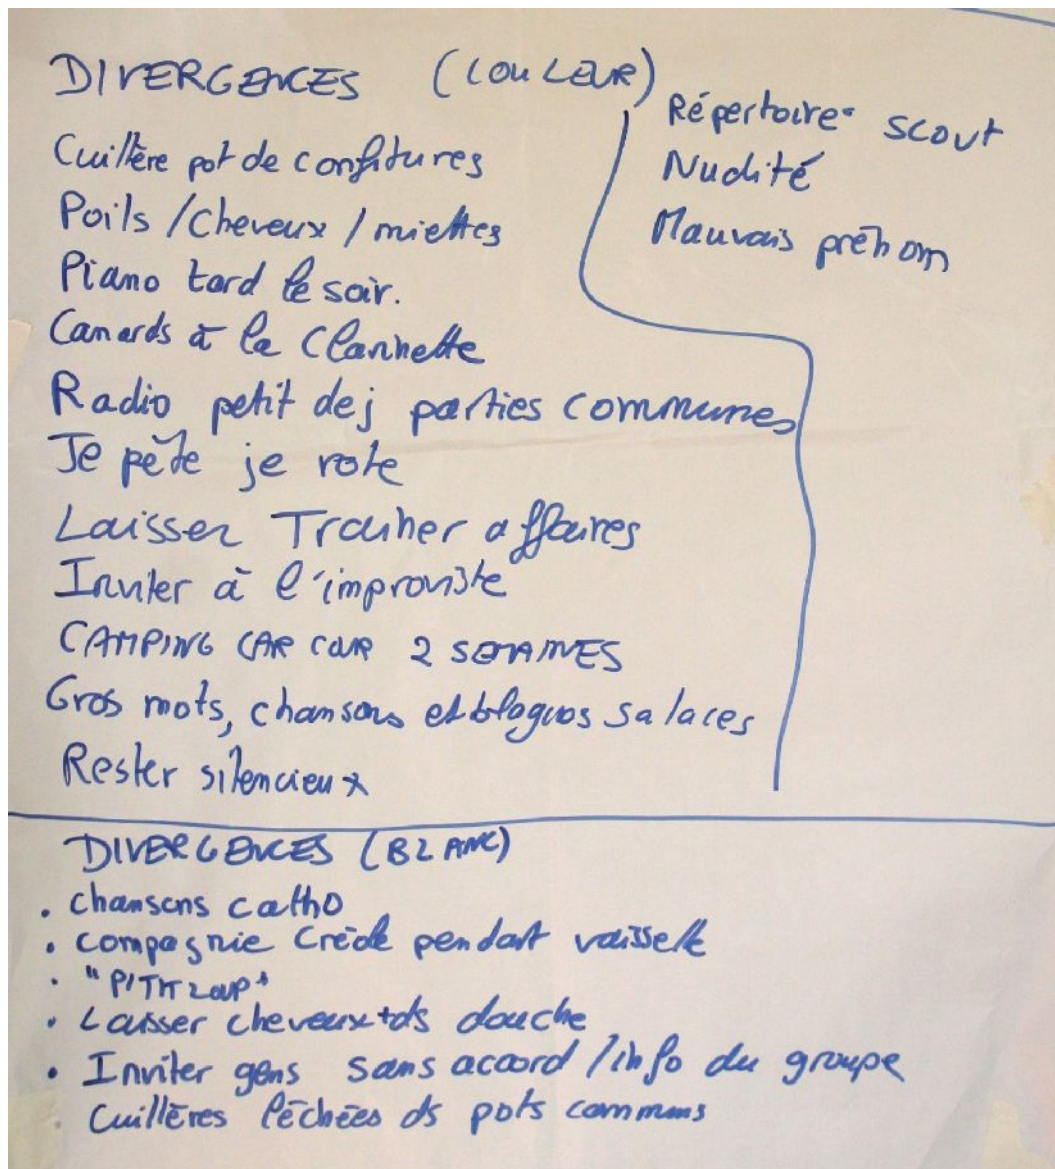 DIVERGENCES (COULEUR)
Cuillère pot de confitures
Poils / Cheveux / miettes
Piano tard le soir.
Canards à la Clarinette
Radio petit dej parties communes
Je pète je rote
Laisser Traîner affaires
Inviter à l'improviste
CAMPING CAR COUR 2 SEMAINES
Gros mots, chansons et blagues salaces
Rester silencieux
Répertoire scout
Nudité
Mauvais prénom
DIVERGENCES (BLANC)
. Chansons catho
. Compagnie Créole pendant vaisselle
. "PITITLOUP"
. Laisser cheveux ds douche
. Inviter gens sans accord / info du groupe
. Cuillères léchées ds pots communs